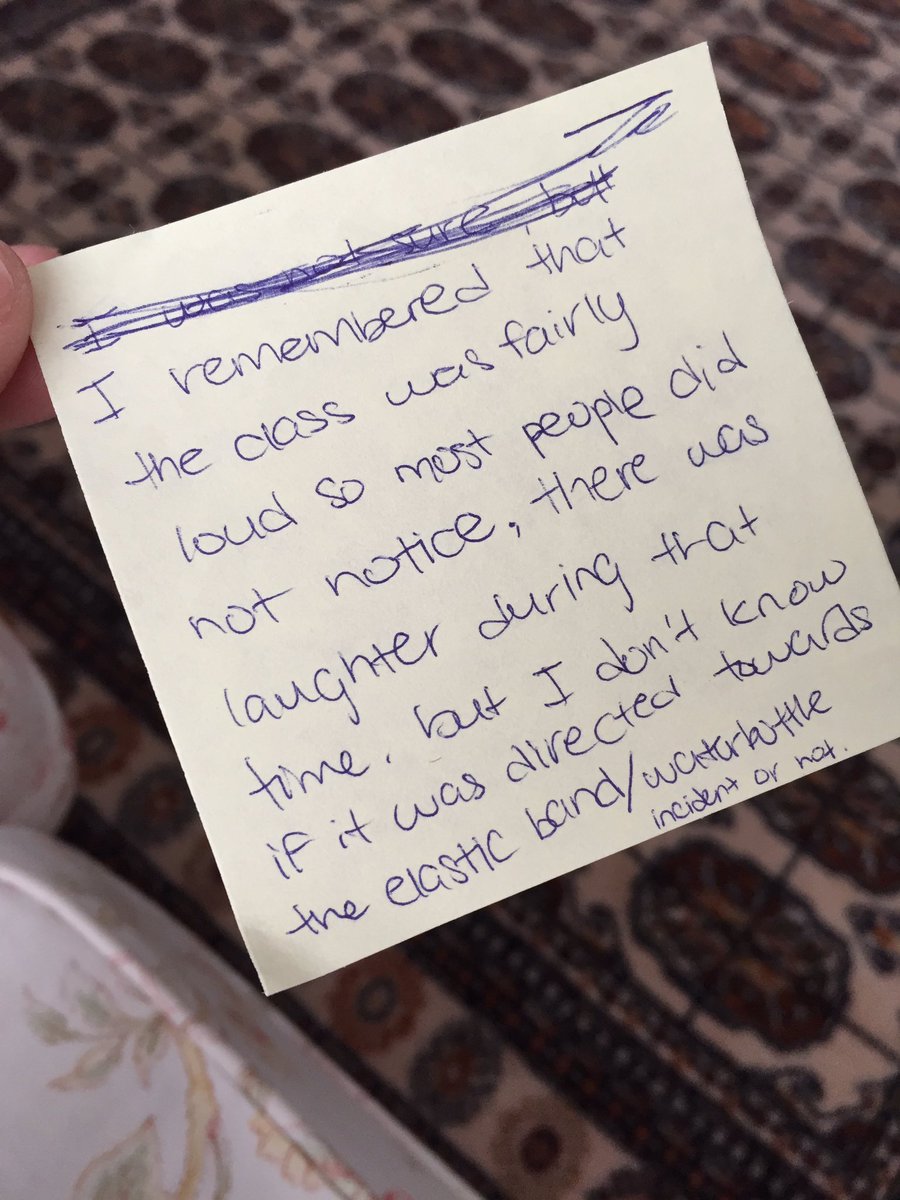 I was not sure, but
I remembered that
the class was fairly
loud so most people did
not notice, there was
laughter during that
time. but I don't know
if it was directed towards
the elastic band/waterbottle
incident or not.